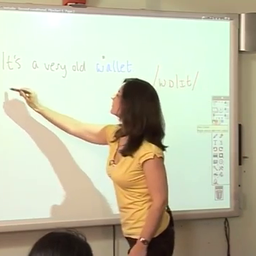 It's a very old wallet /wɒlɪt/